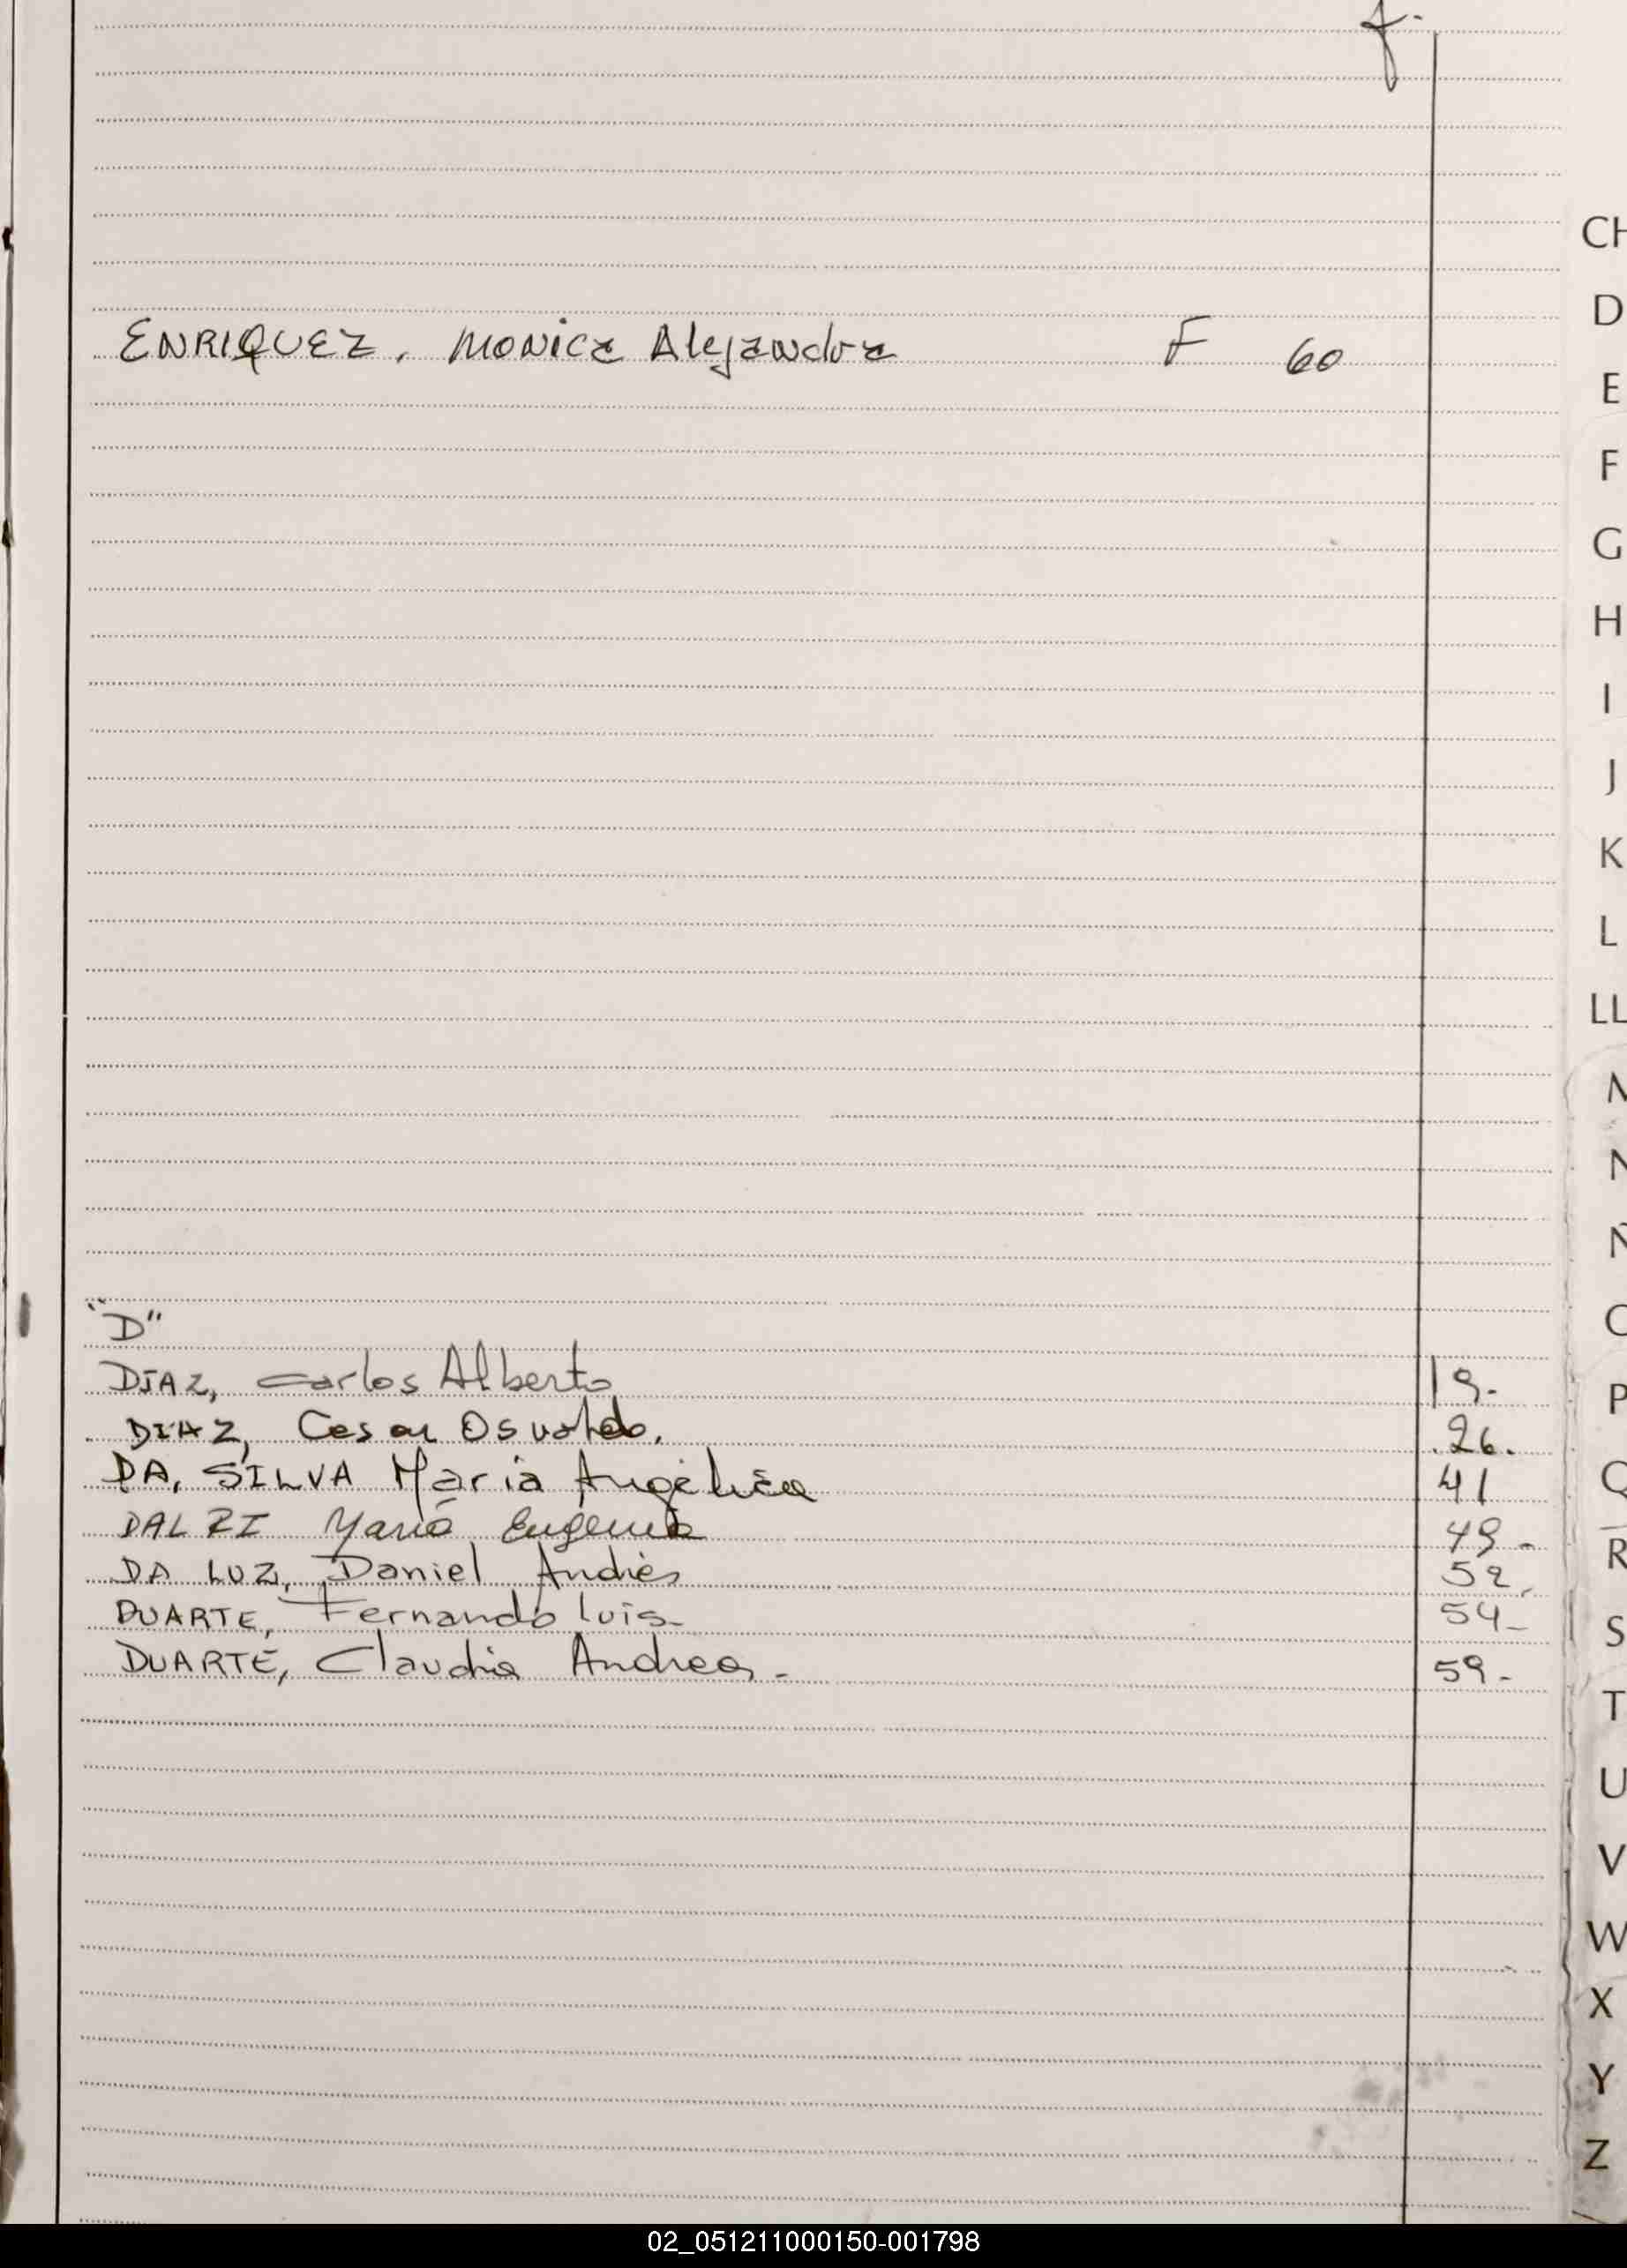 f.
CH
ENRIQUEZ. Monica Alejandra F 60
D
E
F
G
H
I
J
K
L
LL
M
N
Ñ
"D"
O
DIAZ, Carlos Alberto 19.-
P
DIAZ, Cesar Osvaldo. 26.
DA, SILVA Maria Angélica 41
Q
DAL RI María Eugenia 49.-
R
DA LUZ, Daniel Andrés 52.
DUARTE, Fernando Luis- 54-
S
DUARTE, Claudia Andrea.- 59.-
T
U
V
W
X
Y
Z
02_051211000150-001798